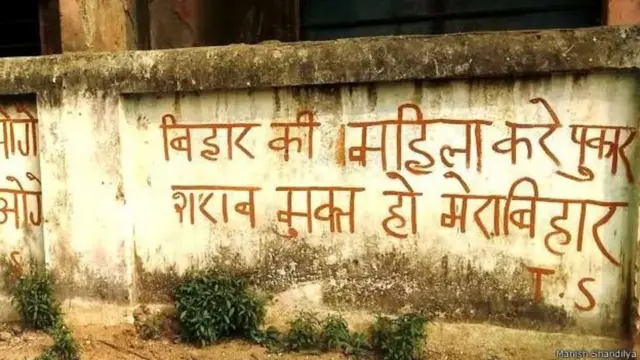 बिहार की महिला करे पुकार
शराब मुक्त हो मेरा बिहार
T.S
Manish Shandilya